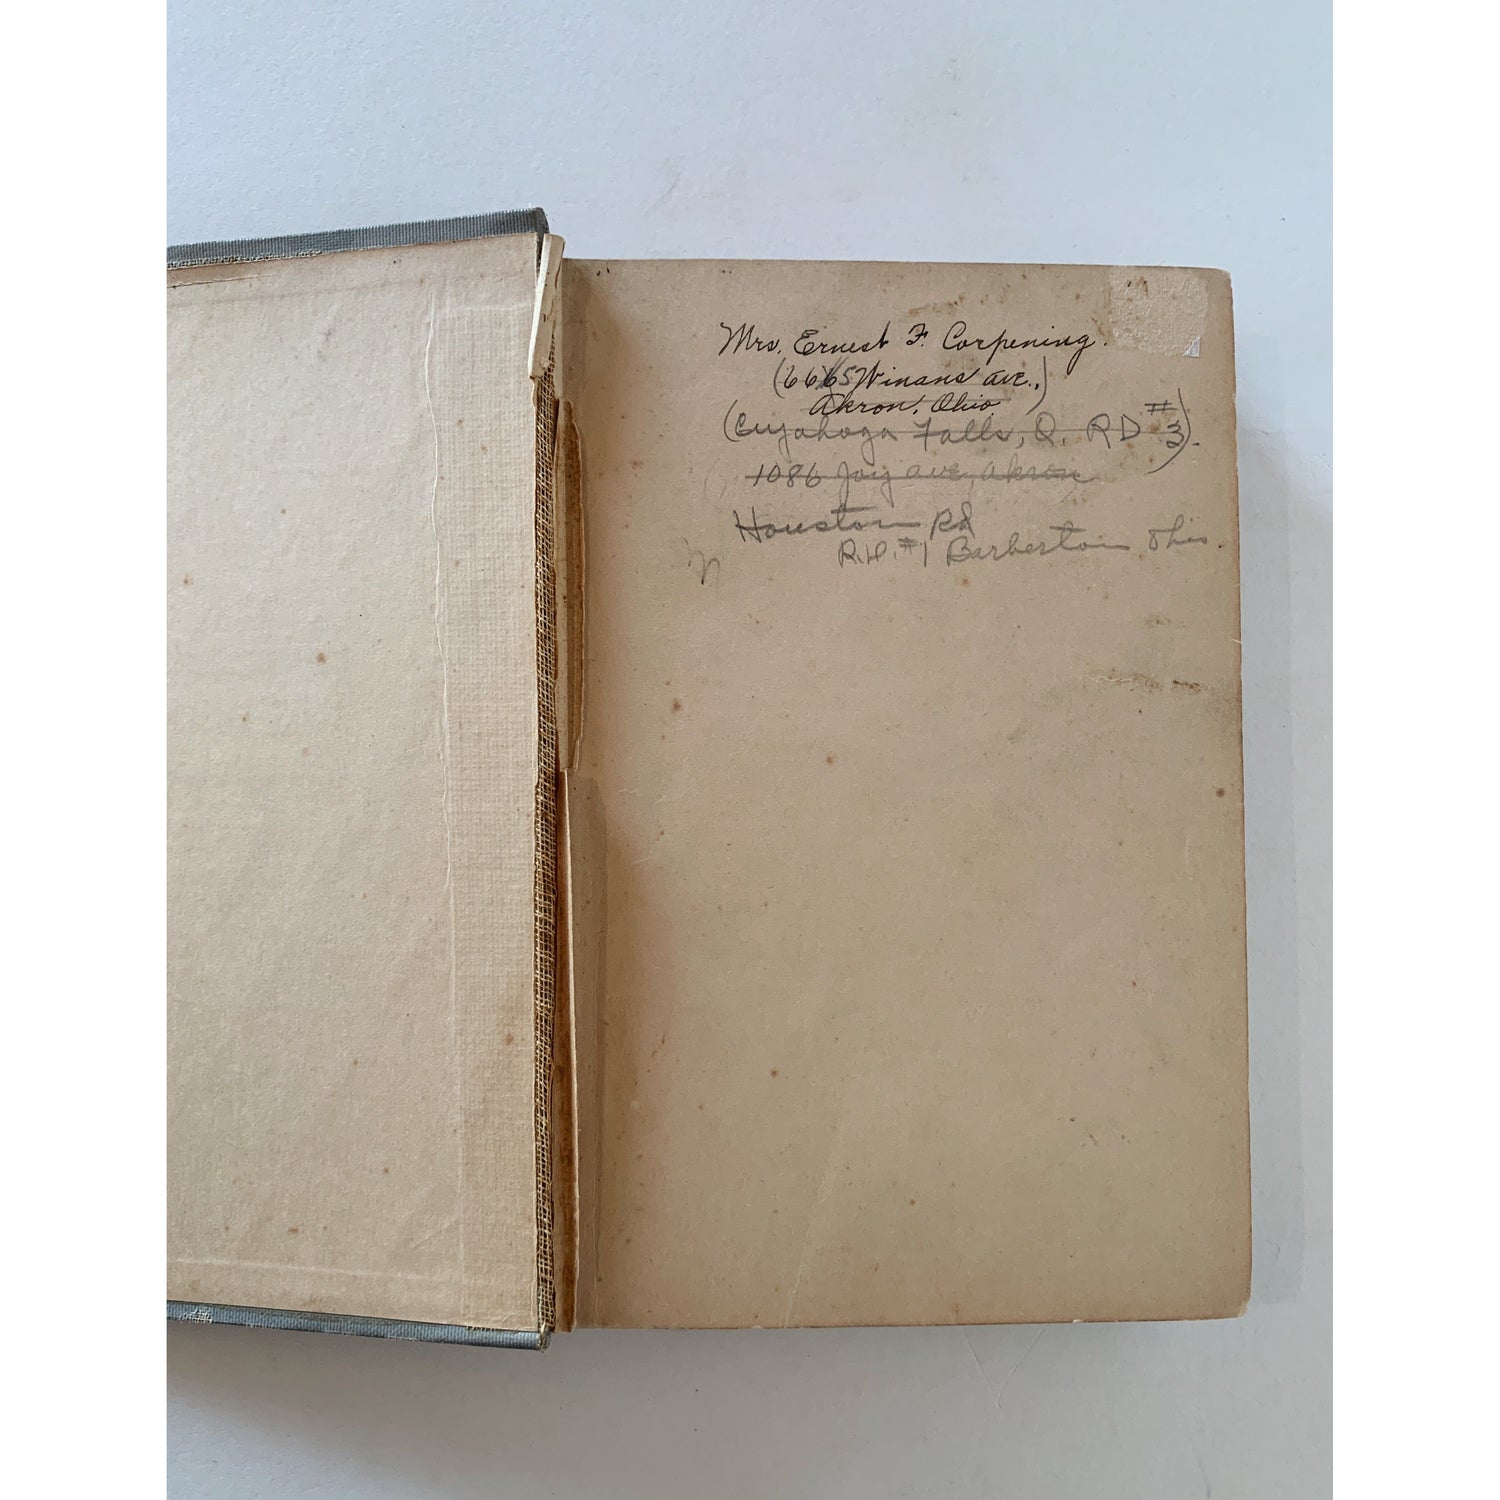 Mrs. Ernest F. Corpening.
Winans ave.,)
Akron, Ohio.
(Cuyahoga Falls, O. RD #3).
1086 Joy ave, Akron
Houston Rd
R.D. #1 Barberton Ohio